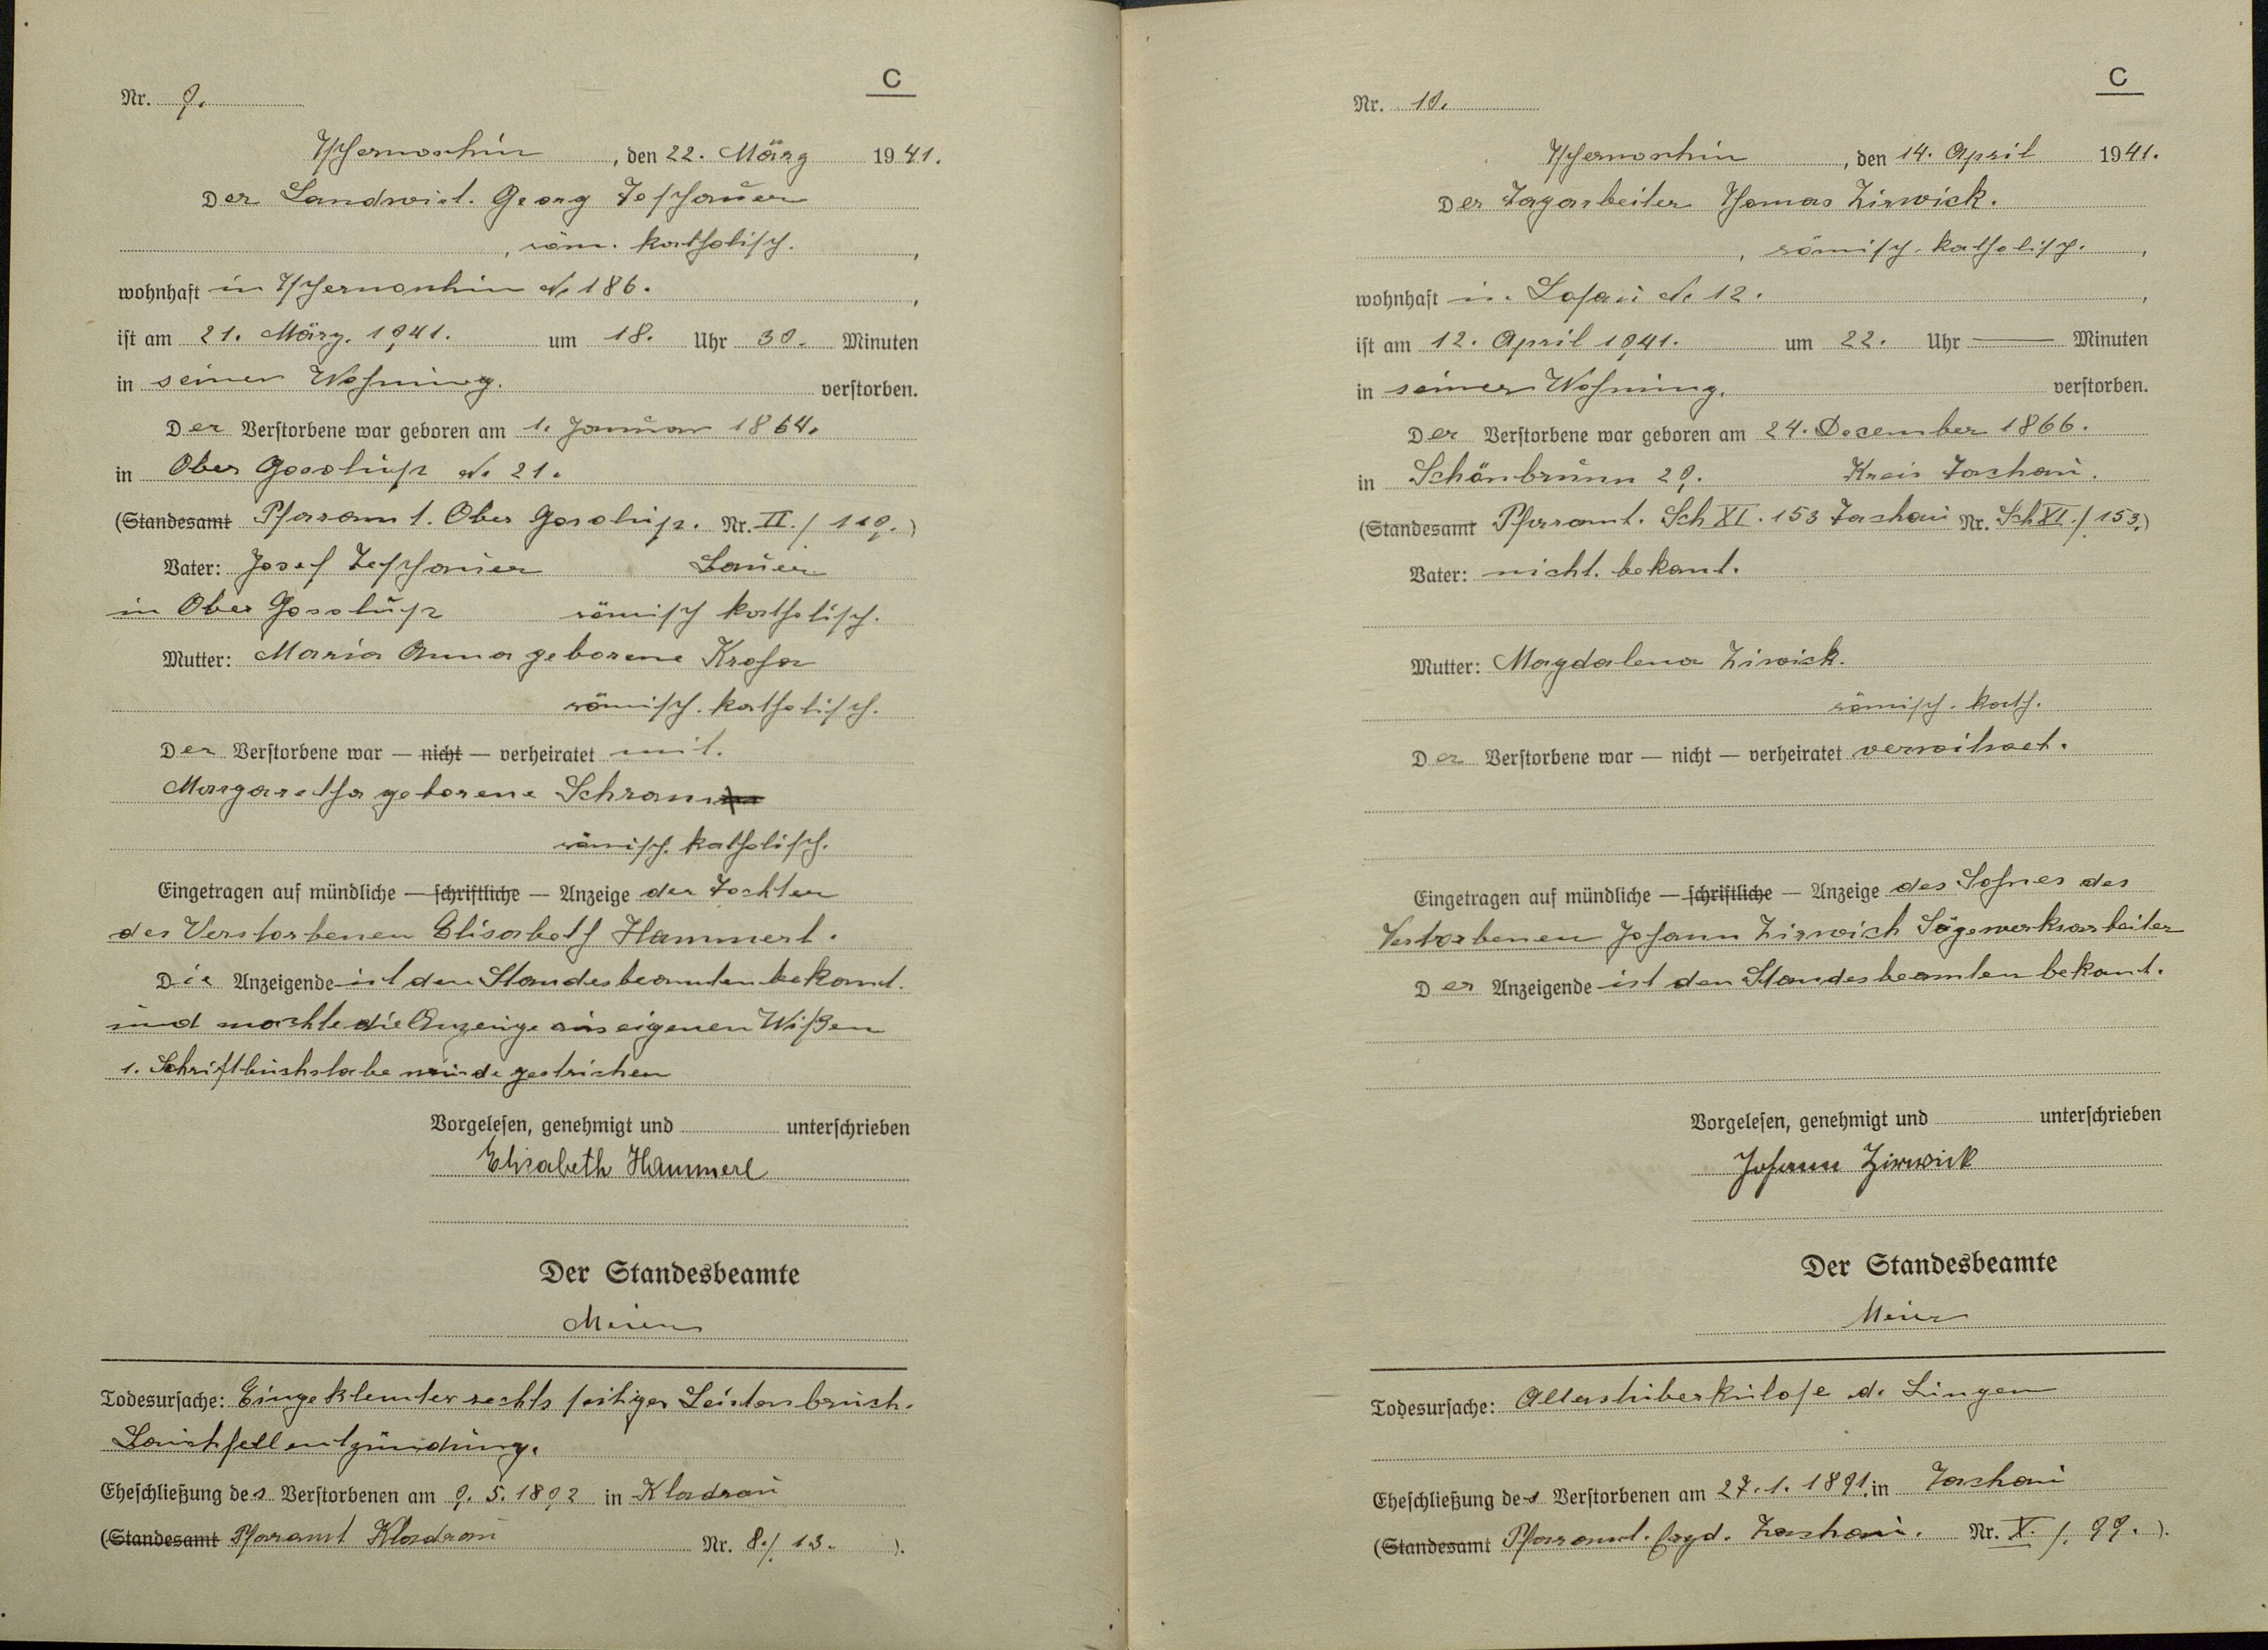 C
Nr. 9.
Tschernoschin, den 22. März 1941.
Der Landwirt. Georg
, röm. katholisch.,
wohnhaft in Tschernoschin № 186.,
ist am 21. März. 1941. um 18. Uhr 30. Minuten
in seiner Wohnung. verstorben.
Der Verstorbene war geboren am 1. Januar 1864.
in Ober Gosolup № 21.
(Standesamt Pfarramt. Ober Gosolup. Nr. II. / 119.)
Vater: Josef
in Ober Gosolup römisch katholisch.
Mutter: Maria Anna geborene Kroha
römisch. katholisch.
Der Verstorbene war — nicht — verheiratet mit.
Margaretha geborene Schram
römisch. katholisch.
Eingetragen auf mündliche — schriftliche — Anzeige der Tochter
des Verstorbenen Elisabeth Hammerl.
Die Anzeigende ist den Standesbeamten bekannt.
und machte die Anzeige aus eigenen Wißen
1. Schriftbuchstabe wurde gestrichen
Vorgelesen, genehmigt und unterschrieben
Elisabeth Hammerl
Der Standesbeamte
Meier
Todesursache: Eingeklemter rechts seitiger Leistenbruch.
Bauchfellentzündung.
Eheschließung des Verstorbenen am 9. 5. 1892 in Kladrau
(Standesamt Pfaramt Kladrau Nr. 8./ 13. ).
C
Nr. 10.
Tschernoschin, den 14. April 1941.
Der Tagarbeiter Thomas Zirwick.
, römisch. katholisch.,
wohnhaft in. Losau № 12.,
ist am 12. April 1941. um 22. Uhr — Minuten
in seiner Wohnung. verstorben.
Der Verstorbene war geboren am 24. December 1866.
in Schönbrunn 29. Kreis Tachau.
(Standesamt Pfarramt. Sch XI. 153 Tachau Nr. Sch XI. / 153.)
Vater: nicht. bekant.
Mutter: Magdalena Zirwick.
römisch. kath.
Der Verstorbene war — nicht — verheiratet verwitwet.
Eingetragen auf mündliche — schriftliche — Anzeige des Sohnes des
Verstorbenen Johann Zirwick Sägewerksarbeiter
Der Anzeigende ist den Standesbeamten bekant.
Vorgelesen, genehmigt und unterschrieben
Johann Zirwick
Der Standesbeamte
Meier
Todesursache: Alterstuberkulose d. Lungen
Eheschließung des Verstorbenen am 27. 1. 1891. in Tachau
(Standesamt Pfarramt. Tachau. Nr. X. /. 99. ).